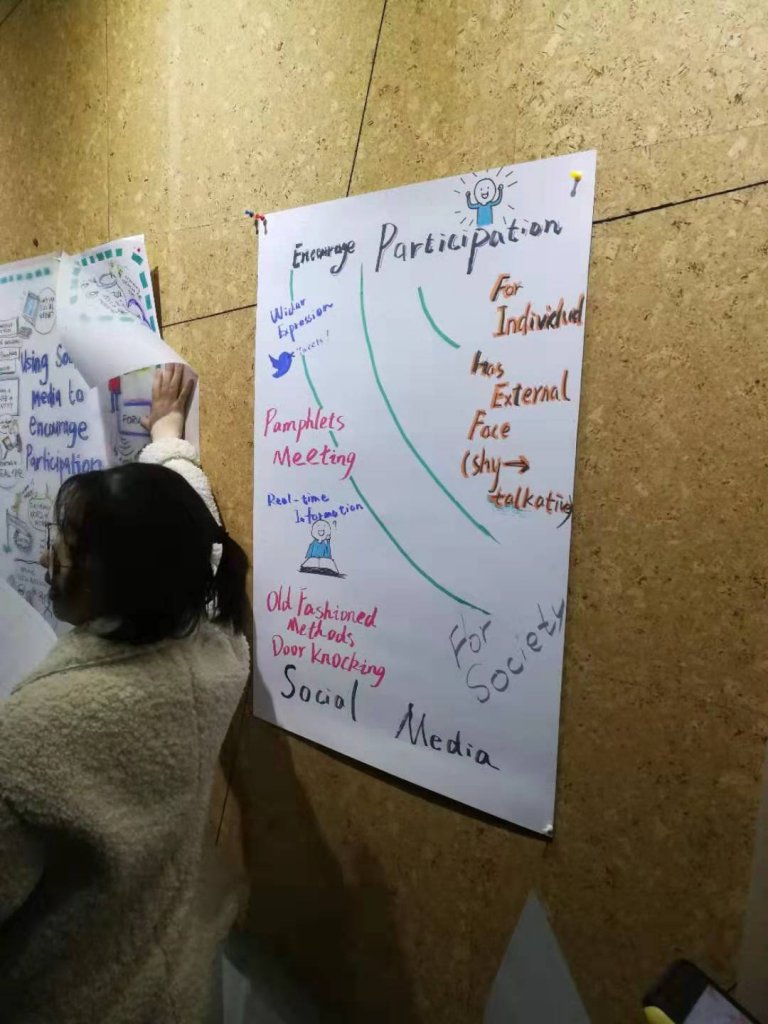 Encourage Participation
Wider
Expression
Tweets!
Pamphlets
Meeting
Real-time
Information
Old Fashioned
Methods
Door Knocking
Social Media
For
Individual
Has
External
Face
(shy→
talkative
For
Society
Using
media to
encourage
Participation